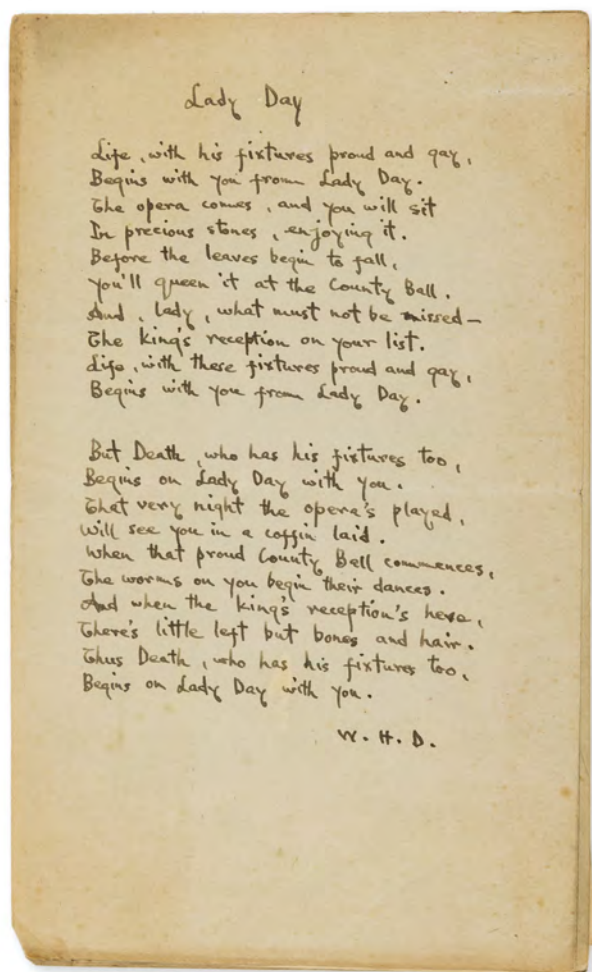 Lady Day
Life, with his fixtures proud and gay,
Begins with you from Lady Day.
The opera comes, and you will sit
In precious stones, enjoying it.
Before the leaves begin to fall,
You'll queen it at the County Ball.
And, lady, what must not be missed—
The king's reception on your list.
Life, with these fixtures proud and gay,
Begins with you from Lady Day.
But Death, who has his fixtures too,
Begins on Lady Day with you.
That very night the opera's played,
Will see you in a coffin laid.
When that proud County Ball commences,
The worms on you begin their dances.
And when the king's reception's here,
There's little left but bones and hair.
Thus Death, who has his fixtures too,
Begins on Lady Day with you.
W. H. D.